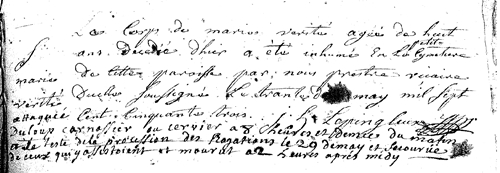 Le Corps de marie verité agée de huit
ans Decedée d'hier a été inhumé En Le petit Cymetiere
de cette paroisse par nous prestre vicaire
Du dit soussigné Le trante De may mil sept
Cent cinquante trois.
S.
marie
verité
attaquée
Du loup carnassier ou cervier a 8 heures et demiee du matin
a la teste de la procession des Rogations le 29 de may et secourüe
de ceux qui y assistoient et mourut a 2 heures apres midy